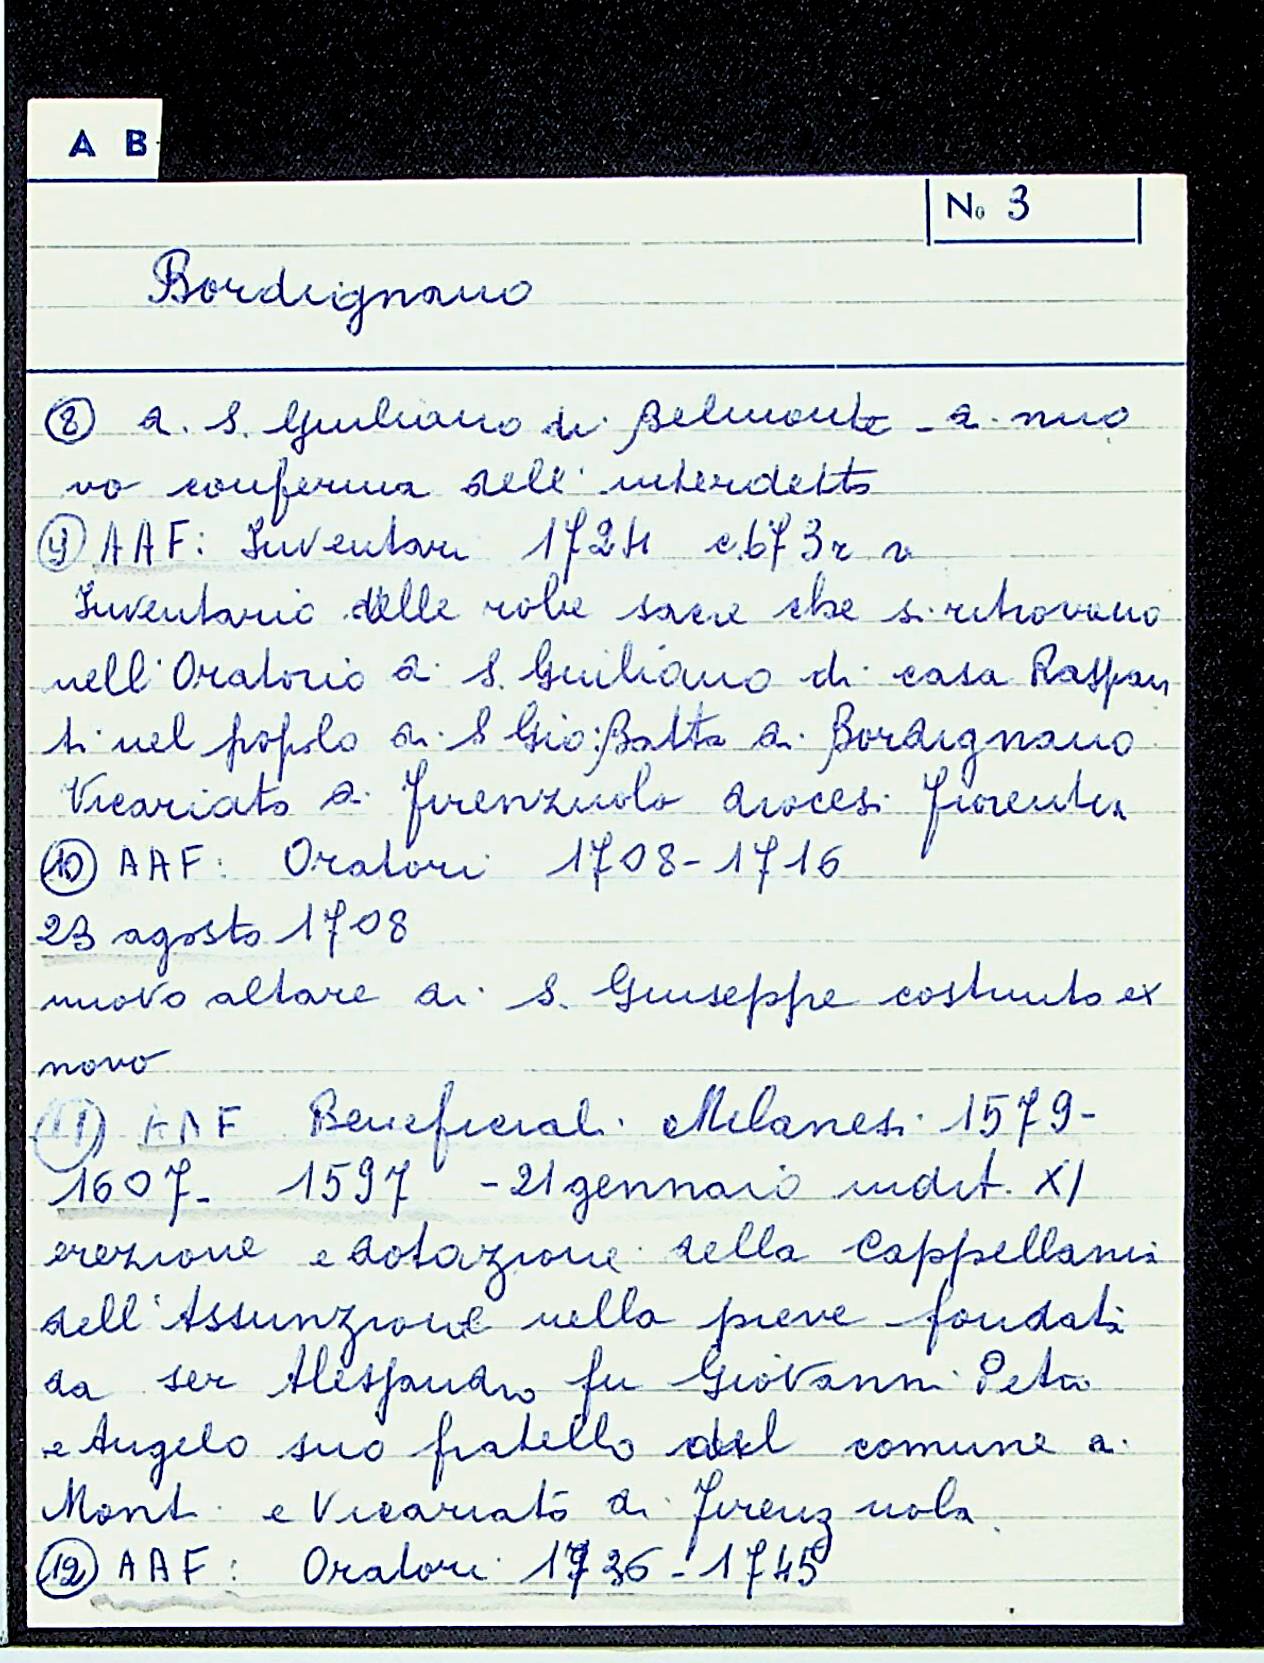 A B
No 3
Bordignano
8 di S. Giuliano di Belmonte - di nuo
vo conferma dell' interdetto
9 AAF: Inventari 1724 c. 673r v
Inventario delle robe sacre che si ritrovano
nell' Oratorio di S. Guiliano di casa Raspan
ti nel popolo di S Gio: Batta di Bordignano
Vicariato di Firenzuola diocesi fiorentina
10 AAF: Oratori 1708-1716
23 agosto 1708
nuovo altare di S. Giuseppe costruito ex
novo
11 AAF Beneficiali Milanesi 1579-
1607- 1597 - 21 gennaio indit. XI
erezione e dotazione della Cappellania
dell' Assunzione nella pieve fondata
da ser Alessandro fu Giovanni Petri
e Angelo suo fratello del comune di
Monti e Vicariato di Firenzuola
12 AAF: Oratori 1736-1745